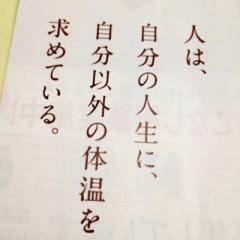 人は、
自分の人生に、
自分以外の体温を
求めている。